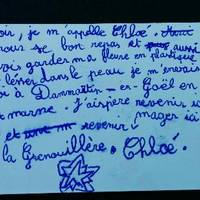 oir, je m'appelle Chloé.
nous se bon repas et aussi
voir garder ma fleure en plastique
dans le peau je m'envais
à Dammartin-en-Goël en
et marne. j'aispère revenir ici
et revenir mager ici
la Grenouillère. Chloé.